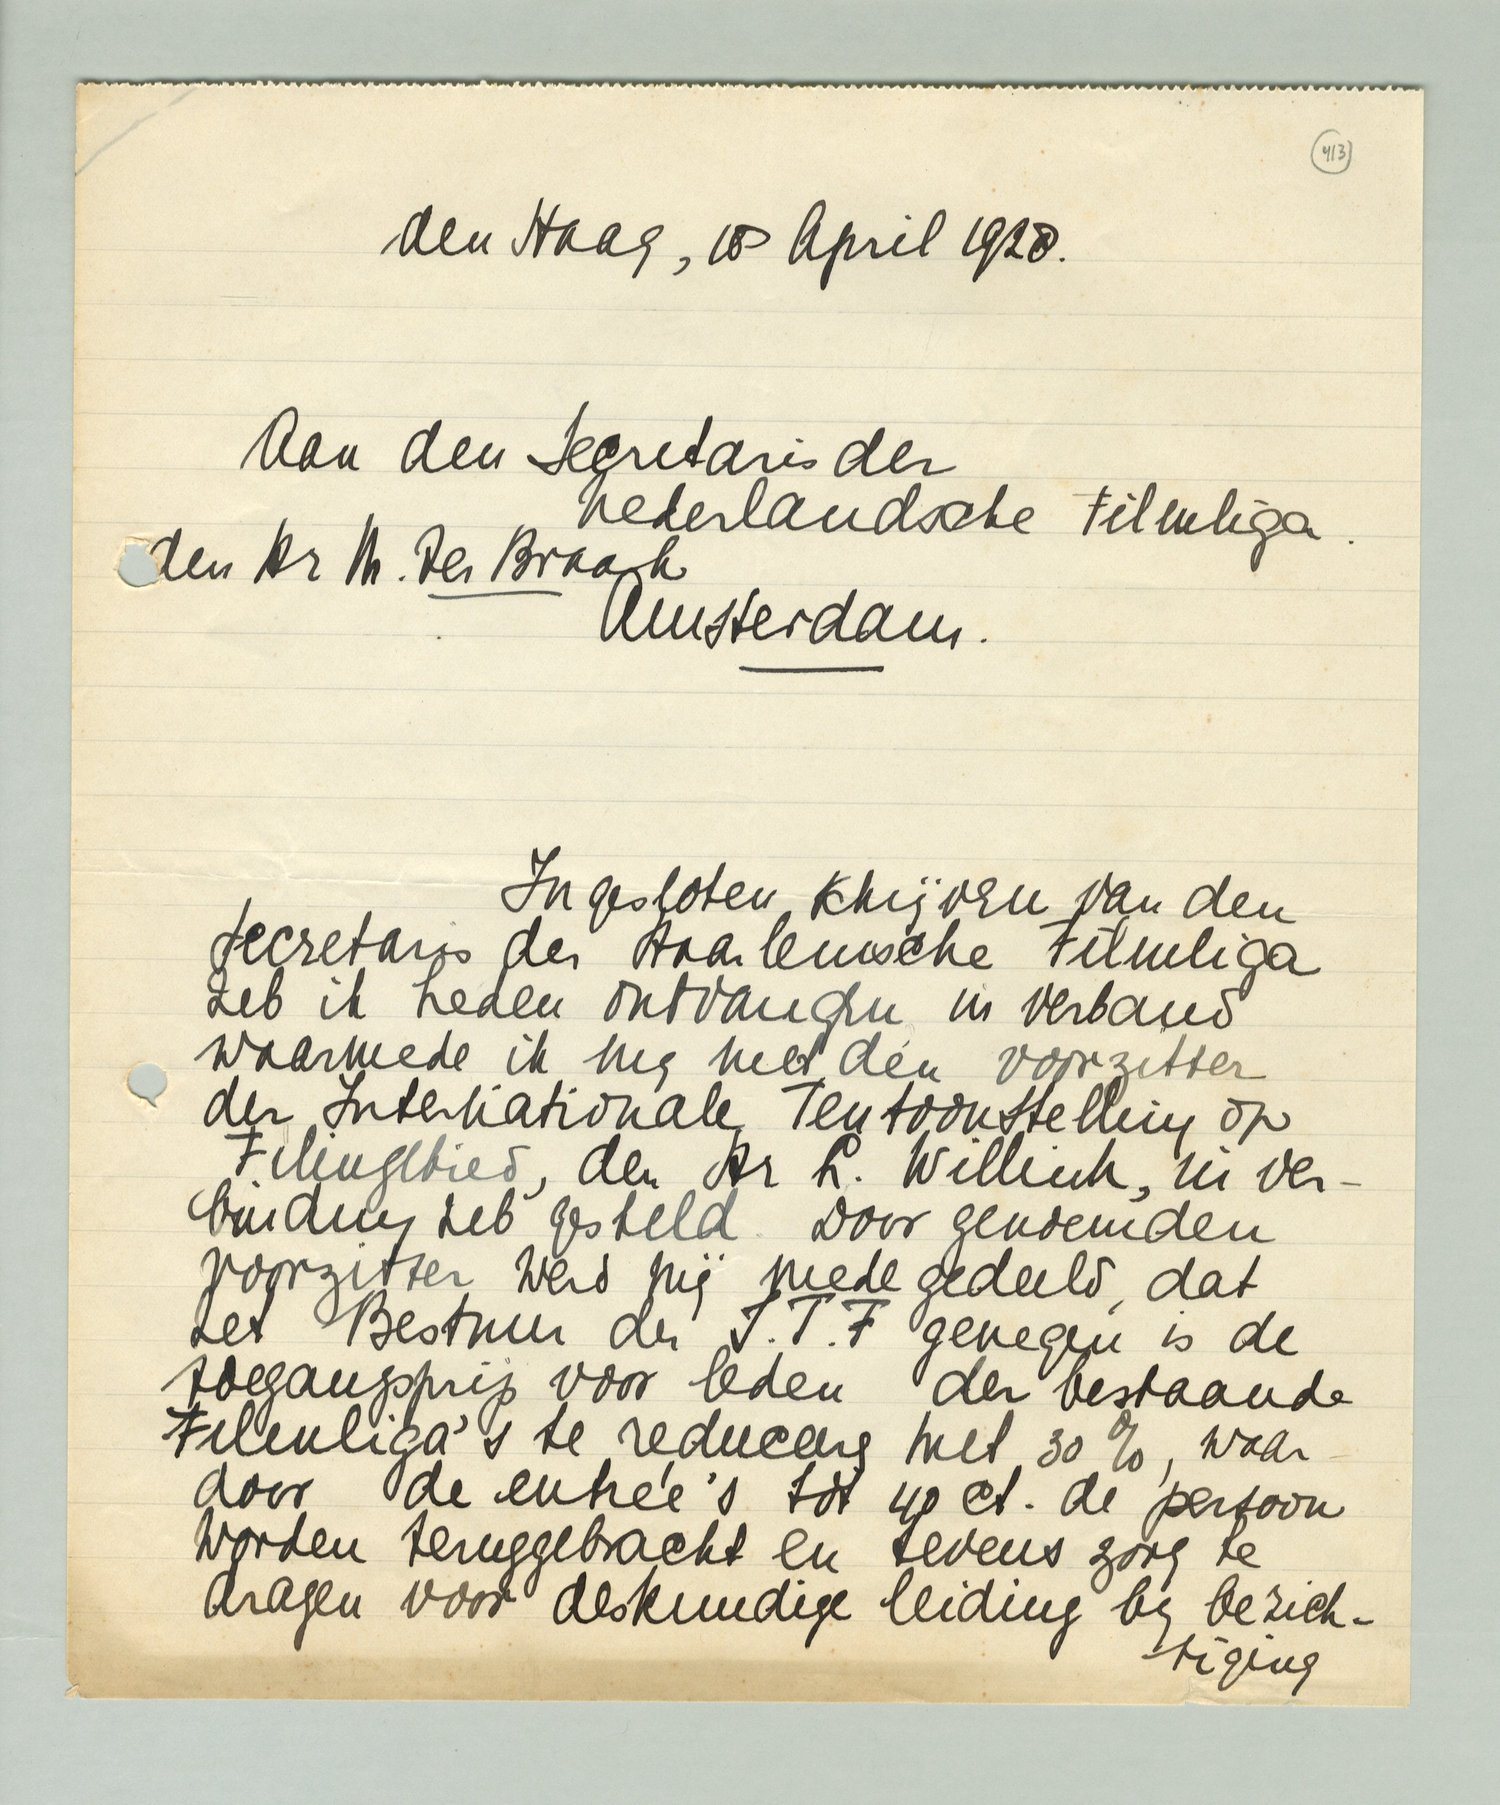 413
den Haag, 18 April 1928.
Aan den Secretaris der
Nederlandsche Filmliga.
den Hr M. Ter Braak
Amsterdam.
Ingesloten schrijven van den
Secretaris der Haarlemsche Filmliga
heb ik heden ontvangen in verband
waarmede ik my met den voorzitter
der Internationale Tentoonstelling op
Filmgebied, den Hr L. Willink, in ver-
binding heb gesteld. Door genoemden
voorzitter werd mij medegedeeld, dat
het Bestuur der I.T.F genegen is de
toegangsprijs voor leden der bestaande
Filmliga's te reduceeren met 30%, waar-
door de entrée's tot 40 ct. de persoon
worden teruggebracht en tevens zorg te
dragen voor deskundige leiding by bezich-
tiging